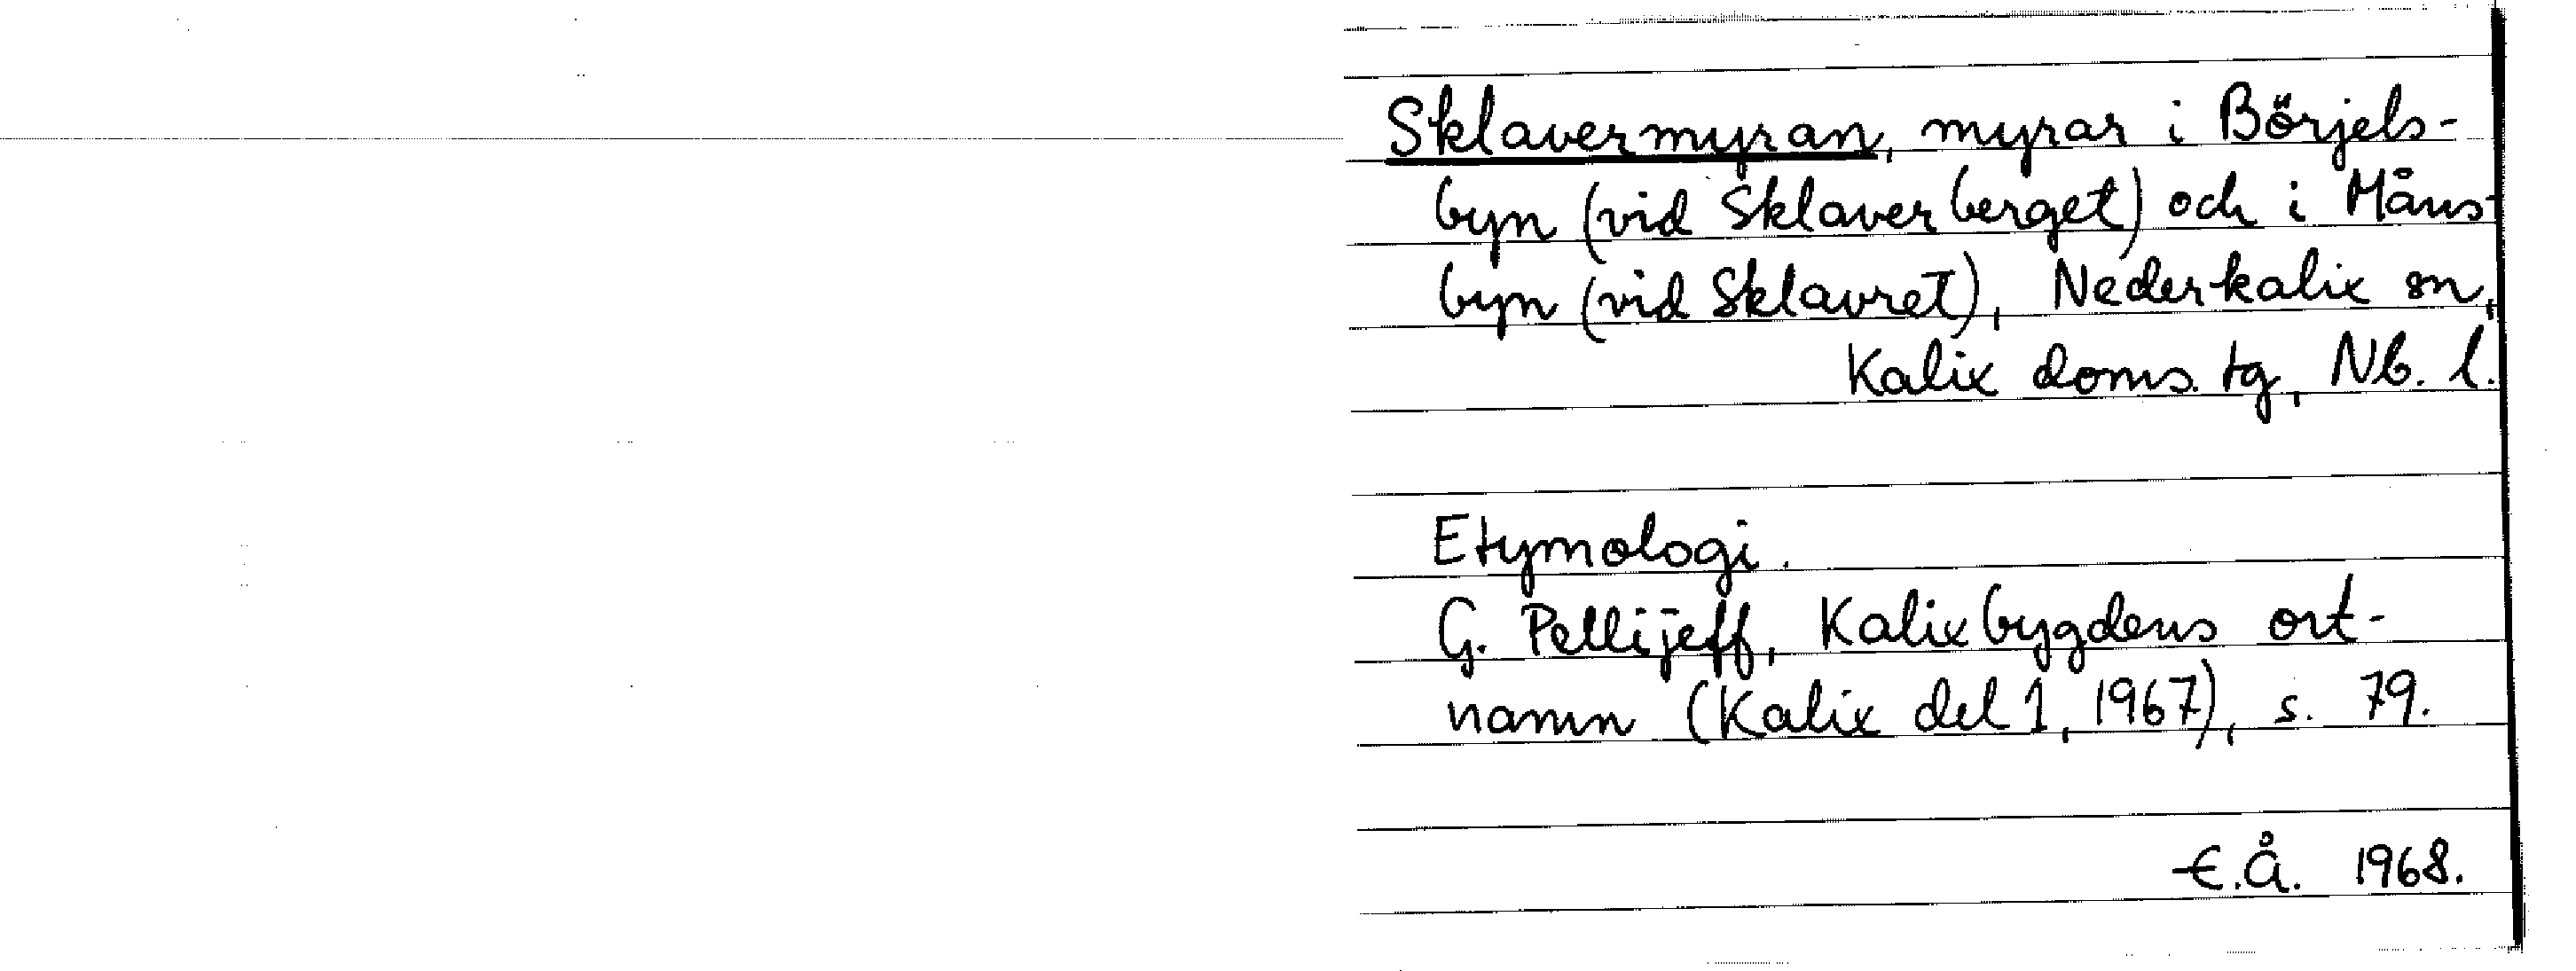 Sklavermyran, myrar i Börjels-
byn (vid Sklaverberget) och i Måns-
byn (vid Sklavret), Nederkalix sn,
Kalix doms. tg, Nb. l.
Etymologi.
G. Pellijeff, Kalixbygdens ort-
namn (Kalix del 1, 1967), s. 79.
E.Å. 1968.